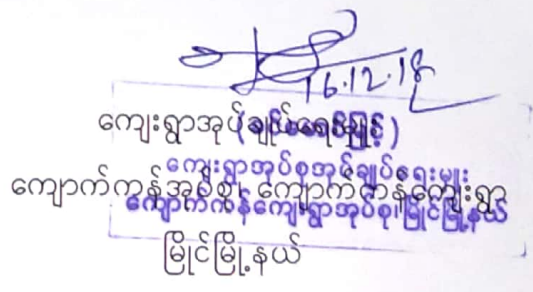 16.12.18
ကျေးရွာအုပ်ချုပ်ရေးမှူး
ကျေးရွာအုပ်စုအုပ်ချုပ်ရေးမှူး
ကျောက်ကန်အုပ်စု၊ ကျောက်ကန်ကျေးရွာ
ကျောက်ကန်ကျေးရွာအုပ်စု၊မြိုင်မြို့နယ်
မြိုင်မြို့နယ်